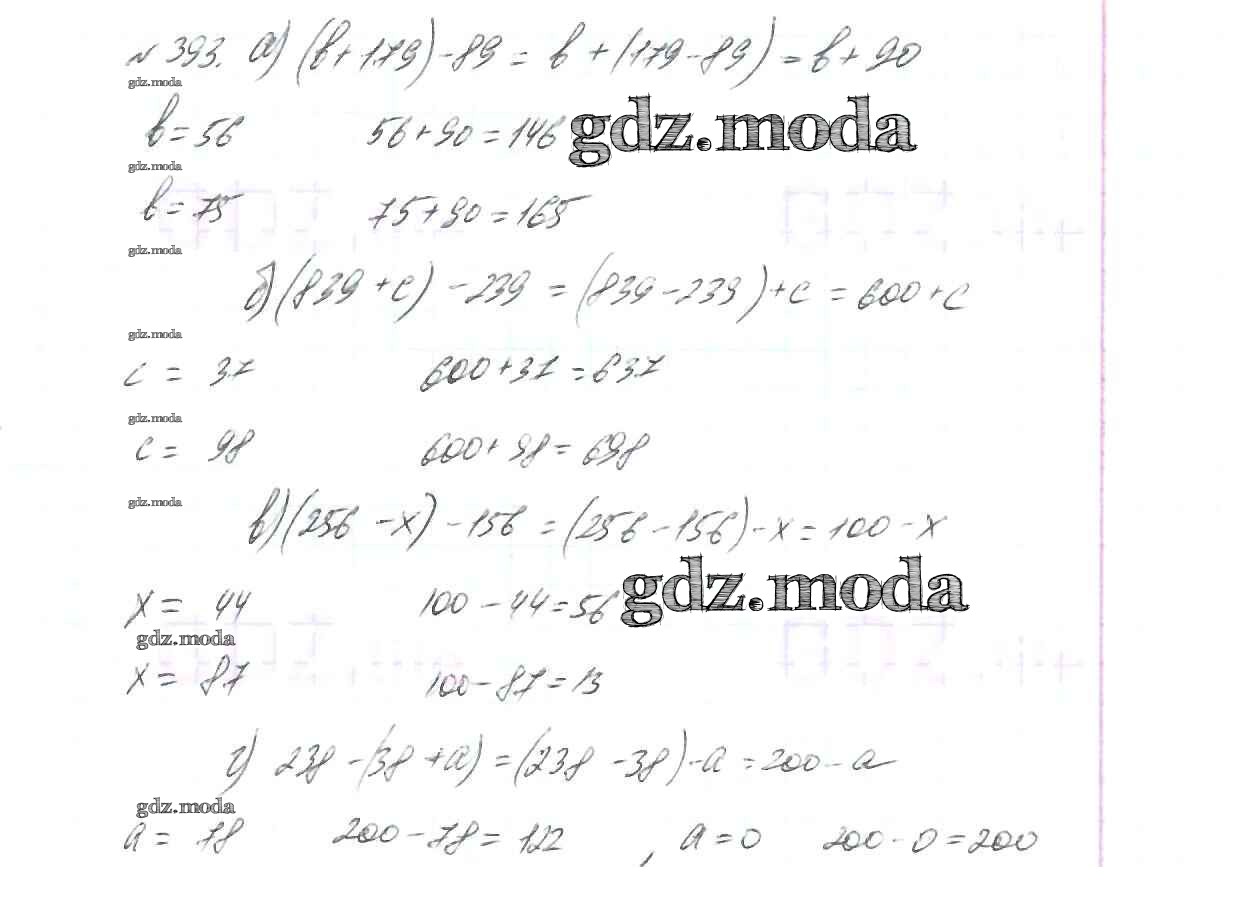 № 393. а) (в+179)-89 = в+(179-89) = в+90
gdz.moda
в=56 56+90=146 gdz.moda
gdz.moda
в=75 75+90=165
gdz.moda
б) (839+с) -239 = (839-239)+с = 600+с
gdz.moda
с = 37 600+37=637
gdz.moda
с = 98 600+98=698
gdz.moda
в) (256-х)-156 = (256-156)-х = 100-х
gdz.moda
х = 44 100-44=56
gdz.moda
х = 87 100-87=13
г) 238-(38+а) = (238-38)-а = 200-а
gdz.moda
а = 78 200-78=122 , а=0 200-0=200